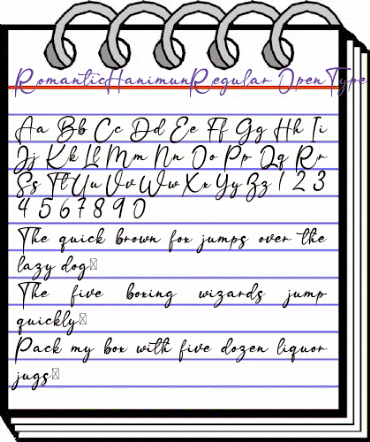 RomanticHanimunRegular OpenType
Aa Bb Cc Dd Ee Ff Gg Hh Ii
Jj Kk Ll Mm Nn Oo Pp Qq Rr
Ss Tt Uu Vv Ww Xx Yy Zz 1 2 3
4 5 6 7 8 9 0
The quick brown fox jumps over the
lazy dog
The five boxing wizards jump
quickly
Pack my box with five dozen liquor
jugs